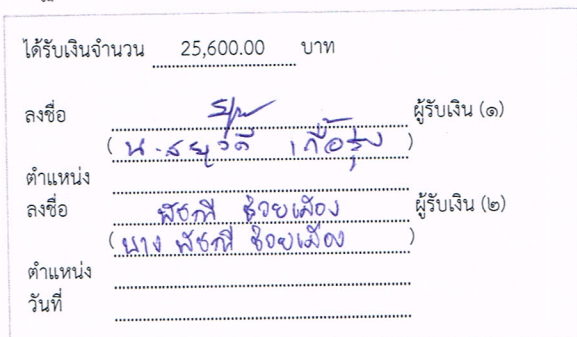 ได้รับเงินจำนวน 25,600.00 บาท
ลงชื่อ ผู้รับเงิน (๑)
( น.ส ยุวดี )
ตำแหน่ง
ลงชื่อ พัชณี ช่วยเมือง ผู้รับเงิน (๒)
( นาง พัชณี ช่วยเมือง )
ตำแหน่ง
วันที่